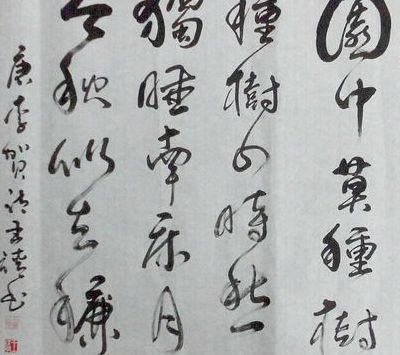 園中莫種樹
種樹四時愁
獨睡南床月
今秋似去秋
唐李賀詩書